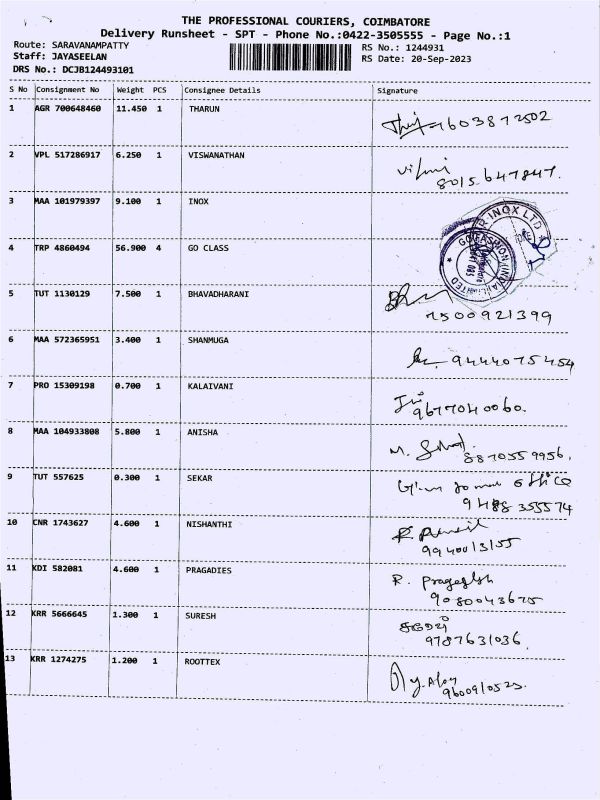 THE PROFESSIONAL COURIERS, COIMBATORE
Delivery Runsheet - SPT - Phone No.:0422-3505555 - Page No.:1
Route: SARAVANAMPATTY
RS No.: 1244931
Staff: JAYASEELAN
RS Date: 20-Sep-2023
DRS No.: DCJB124493101
S No Consignment No Weight PCS Consignee Details Signature
1 AGR 700648460 11.450 1 THARUN
2 VPL 517286917 6.250 1 VISWANATHAN
8015647847.
3 MAA 101979397 9.100 1 INOX
INOX LTD
4 TRP 4860494 56.900 4 GO CLASS
GO FASHION (INDIA) LIMITED
5 TUT 1130129 7.500 1 BHAVADHARANI
7500921399
6 MAA 572365951 3.400 1 SHANMUGA
9444075454
7 PRO 15309198 0.700 1 KALAIVANI
9677040060.
8 MAA 104933808 5.800 1 ANISHA
8870559956.
9 TUT 557625 0.300 1 SEKAR
office
9488 355574
10 CNR 1743627 4.600 1 NISHANTHI
9940013155
11 KDI 582081 4.600 1 PRAGADIES
R. Pragadish
9080043675
12 KRR 5666645 1.300 1 SURESH
9787631036.
13 KRR 1274275 1.200 1 ROOTTEX
9600910523.